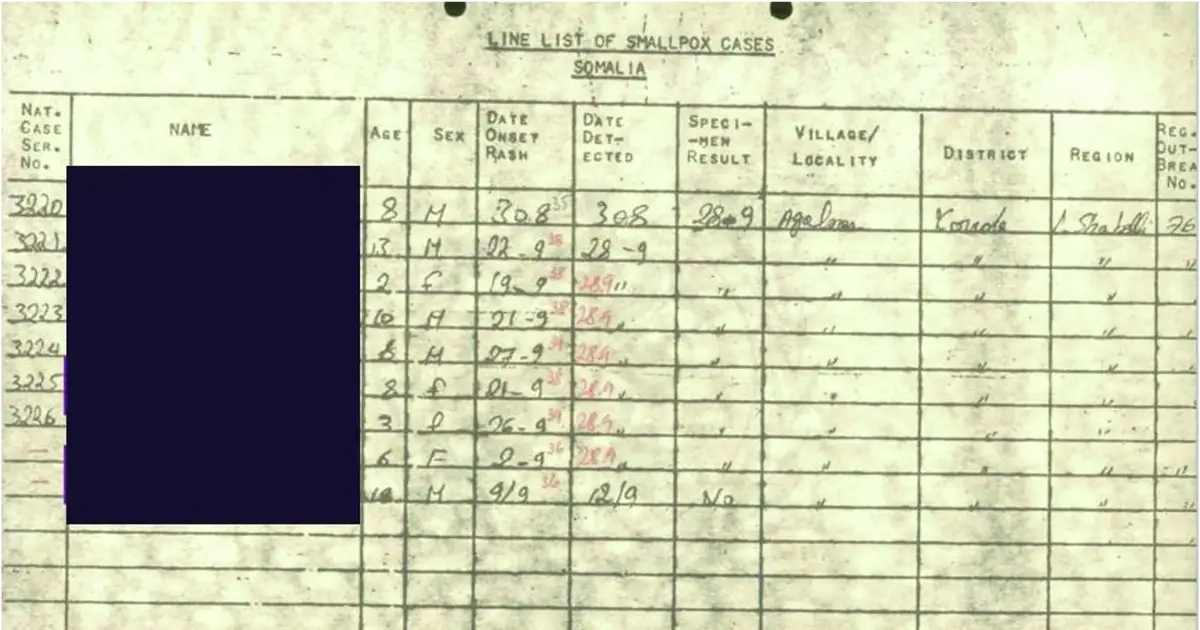 LINE LIST OF SMALLPOX CASES
SOMALIA
NAT. CASE SER. No. NAME AGE SEX DATE ONSET RASH DATE DET- ECTED SPECI- -MEN RESULT VILLAGE/ LOCALITY DISTRICT REGION REG. OUT- BREA No.
3220 8 M 30.8 35 30.8 28.9 L. Shabelli 76
3221 13 M 22-9 38 28-9 " " " "
3222 2 F 19-9 38 28.9 " " " " "
3223 10 M 21-9 38 28.9 " " " " " "
3224 8 M 27-9 39 28.9 " " " " "
3225 8 f 21-9 38 28.9 " " " " "
3226 3 f 26-9 39 28.9 " " " " "
— 6 F 2-9 36 28.9 " " " " " "
— M 9/9 36 12/9 No " " " "